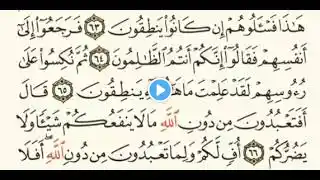 هَٰذَا فَسْـَٔلُوهُمْ إِن كَانُوا۟ يَنطِقُونَ ٦٣ فَرَجَعُوٓا۟ إِلَىٰٓ
أَنفُسِهِمْ فَقَالُوٓا۟ إِنَّكُمْ أَنتُمُ ٱلظَّٰلِمُونَ ٦٤ ثُمَّ نُكِسُوا۟ عَلَىٰ
رُءُوسِهِمْ لَقَدْ عَلِمْتَ مَا هَٰٓؤُلَآءِ يَنطِقُونَ ٦٥ قَالَ
أَفَتَعْبُدُونَ مِن دُونِ ٱللَّهِ مَا لَا يَنفَعُكُمْ شَيْـًٔا وَلَا
يَضُرُّكُمْ ٦٦ أُفٍّ لَّكُمْ وَلِمَا تَعْبُدُونَ مِن دُونِ ٱللَّهِ أَفَلَا